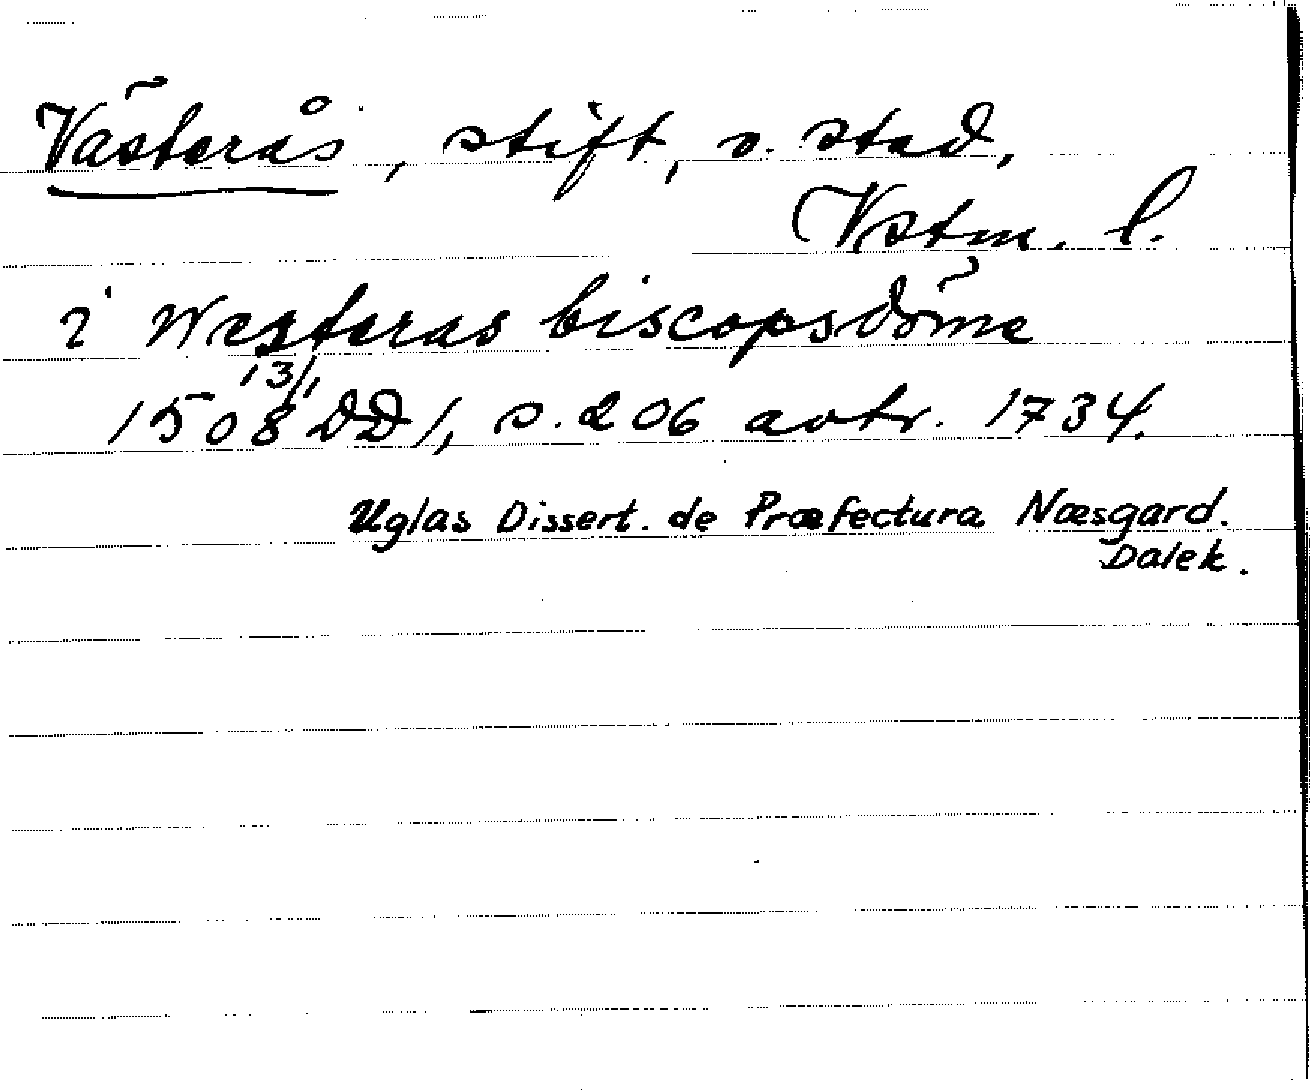 Västerås, stift, o. stad,
Vstm. l.
i Westeras biscopsdöme
1508 13/1 DD 1, s. 206 avtr. 1734.
Uglas Dissert. de Præfectura Næsgard.
Dalek.